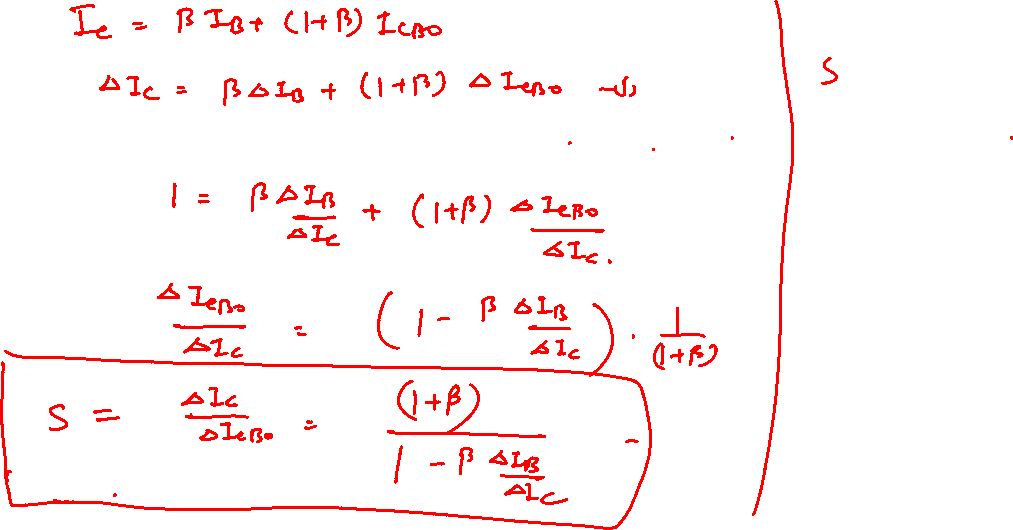 I_C = β I_B + (1+β) I_CBO
ΔI_C = β ΔI_B + (1+β) Δ I_CBO —(1)
S
1 = β ΔI_B/ΔI_C + (1+β) ΔI_CBO/ΔI_C.
ΔI_CBO/ΔI_C = (1 - β ΔI_B/ΔI_C) . 1/(1+β)
S = ΔI_C/ΔI_CBO = (1+β)/(1 - β ΔI_B/ΔI_C) -